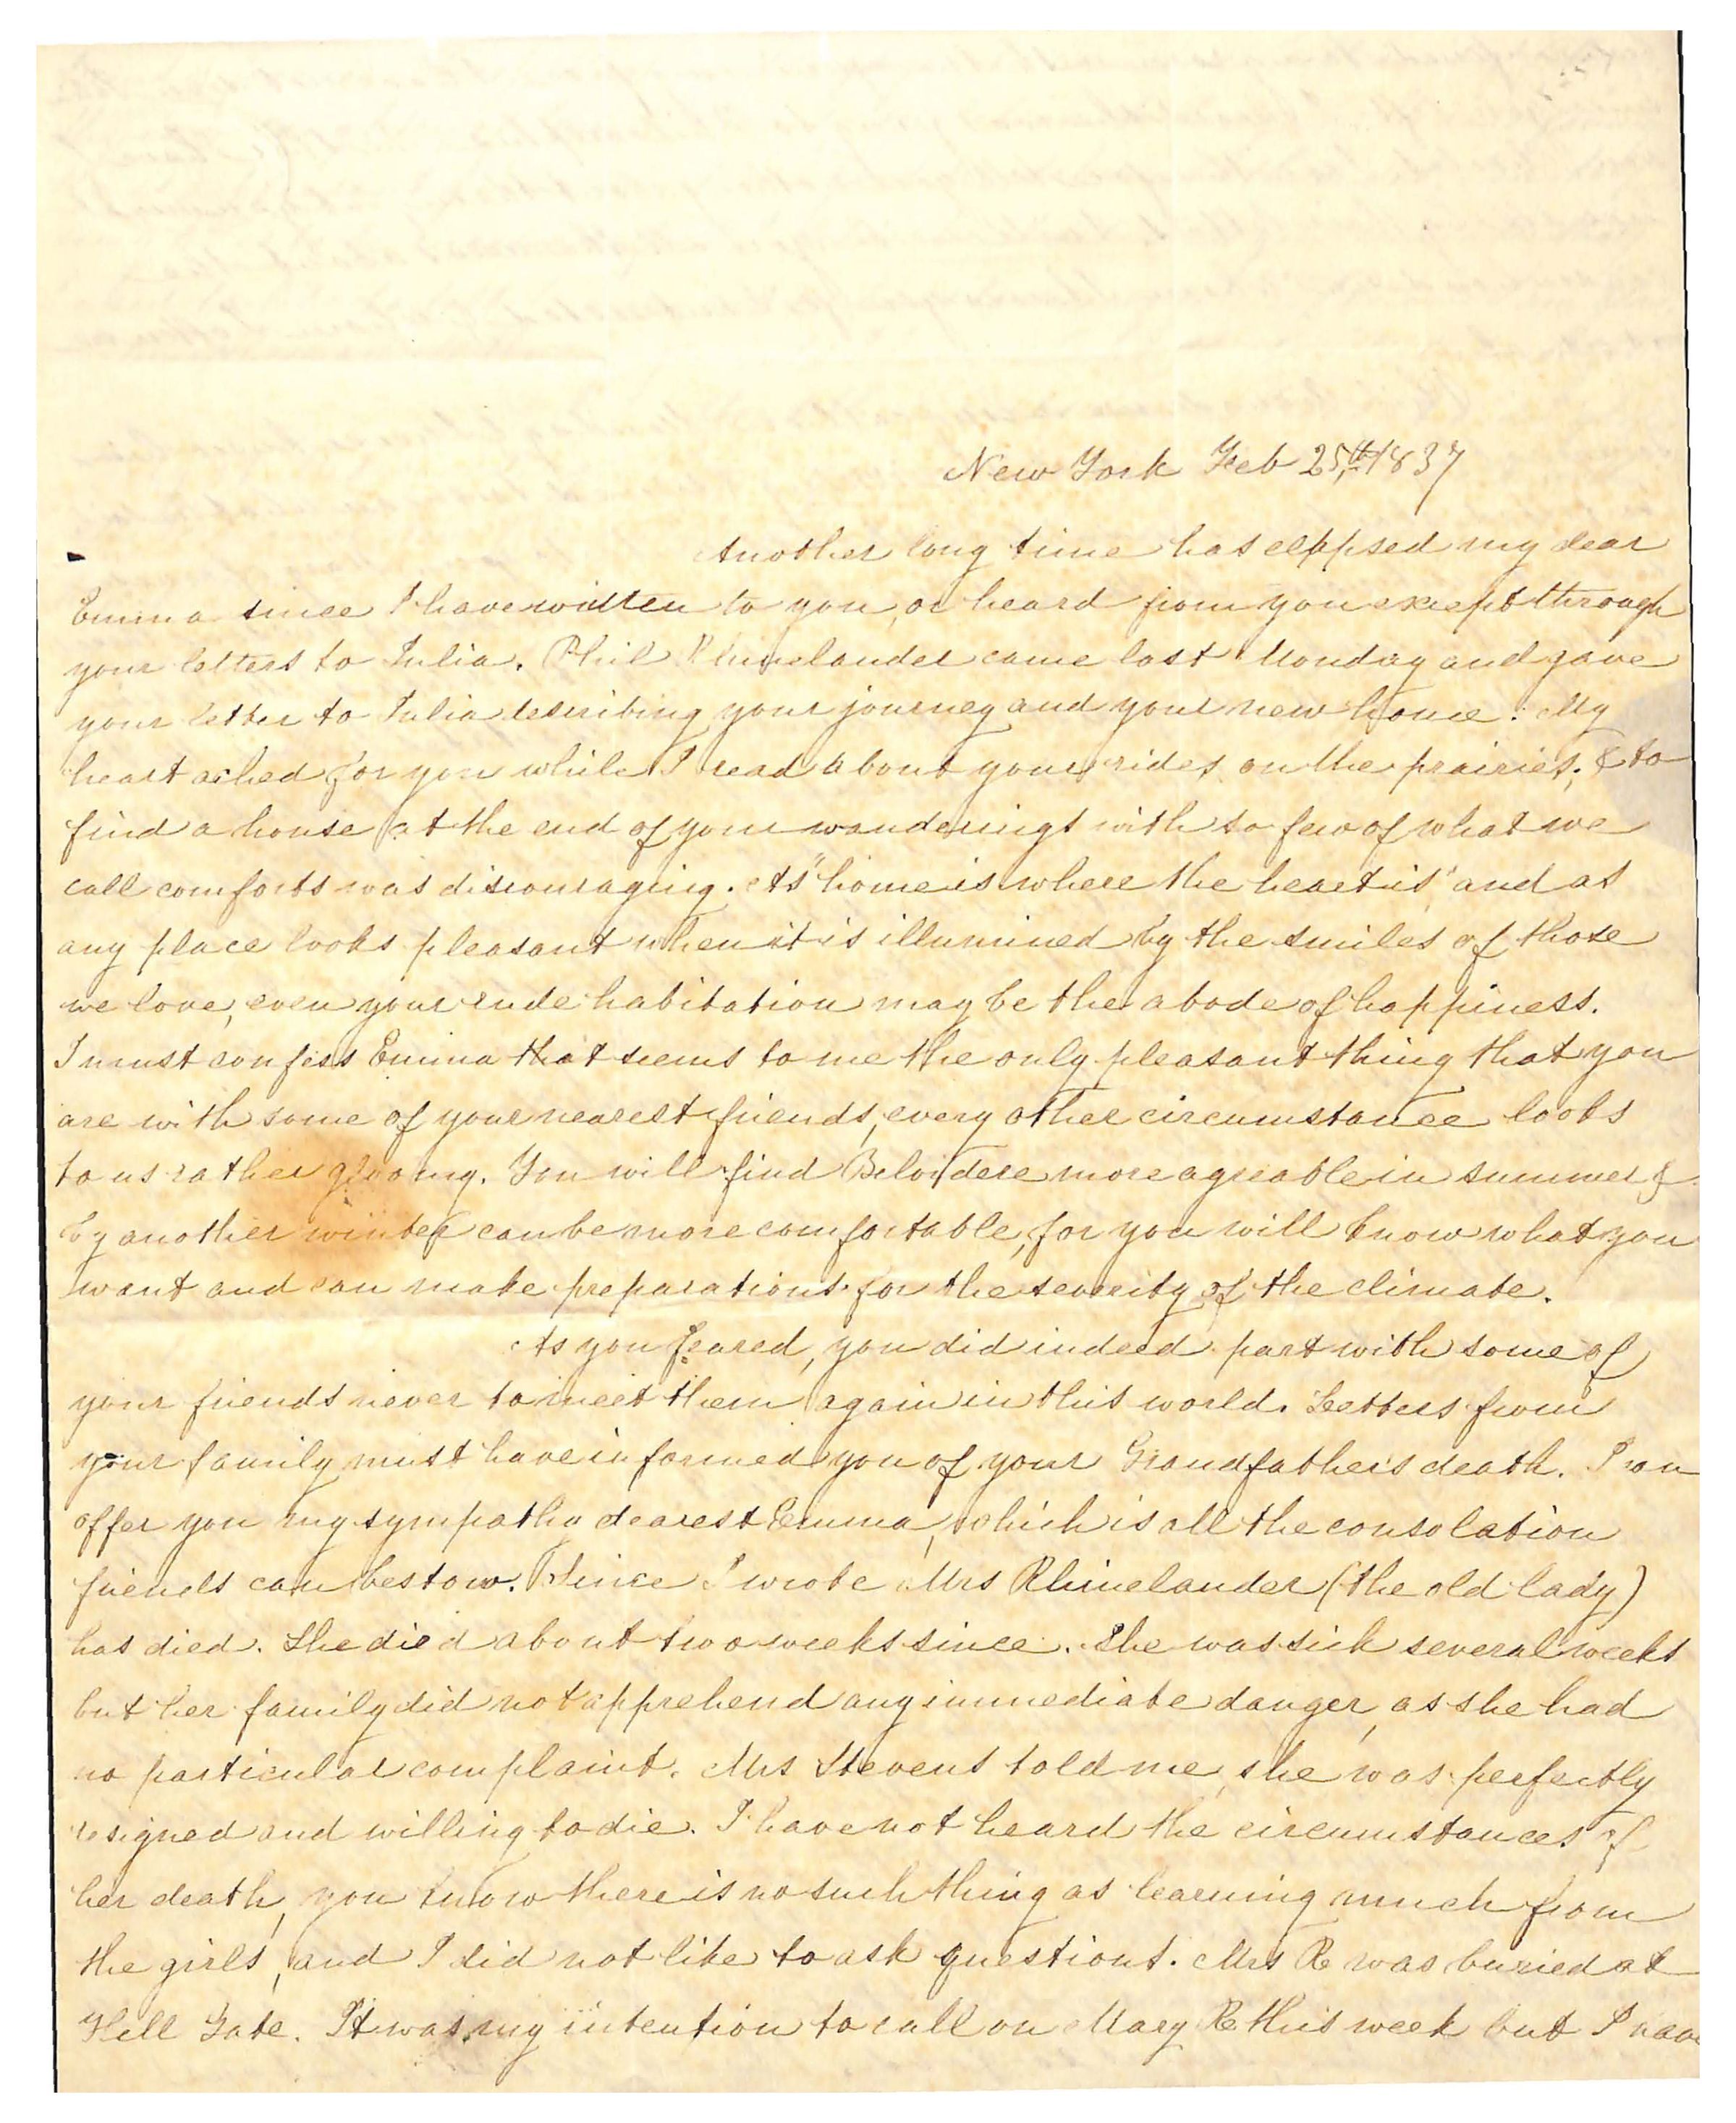 New York Feb 25th 1837
Another long time has elapsed my dear
Emma since I have written to you, or heard from you except through
your letters to Julia. Phil Rhinelander came last Monday and gave
your letter to Julia describing your journey and your new home. My
heart ached for you while I read about your rides on the prairies; & to
find a house at the end of your wanderings with so few of what we
call comforts was discouraging. As "home is where the heart is" and as
any place looks pleasant when it is illumined by the smiles of those
we love, even your rude habitation may be the abode of happiness.
I must confess Emma that seems to me the only pleasant thing that you
are with some of your nearest friends, every other circumstance looks
to us rather gloomy. You will find Belvidere more agreable in summer &
by another winter can be more comfortable, for you will know what you
want and can make preparations for the severity of the climate.
As you feared, you did indeed part with some of
your friends never to meet them again in this world. Letters from
your family must have informed you of your Grandfather's death. I can
offer you my sympathy dearest Emma, which is all the consolation
friends can bestow. Since I wrote Mrs Rhinelander (the old lady)
has died. She died about two weeks since. She was sick several weeks
but her family did not apprehend any immediate danger, as she had
no particular complaint. Mrs Stevens told me, she was perfectly
resigned and willing to die. I have not heard the circumstances of
her death, you know there is no such thing as learning much from
the girls, and I did not like to ask questions. Mrs R was buried at
Hell Gate. It was my intention to call on Mary R this week but I have